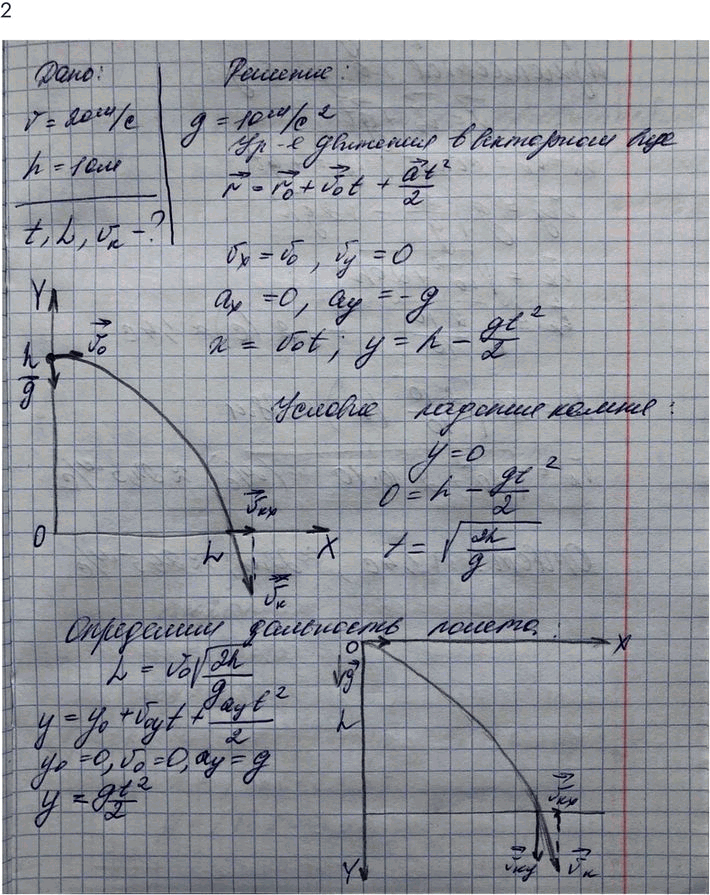 2
Дано:
v = 20 м/с
h = 10 м
t, L, vₖ - ?
Решение:
g = 10 м/с²
Ур-е движения в векторном виде
r⃗ = r⃗₀ + v⃗₀t + a⃗t²/2
vₓ = v₀, v_y = 0
aₓ = 0, a_y = -g
x = v₀t; y = h - gt²/2
Условие падения камня:
y = 0
0 = h - gt²/2
t = √(2h/g)
Y
h
g
v⃗₀
0
L
v⃗ₖₓ
X
v⃗ₖ
Определим дальность полета:
L = v₀√(2h/g)
y = y₀ + v₀_yt + a_yt²/2
y₀ = 0, v₀ = 0, a_y = g
y = gt²/2
0
X
g⃗
h
v⃗ₖₓ
Y
v⃗ₖ_y
v⃗ₖ